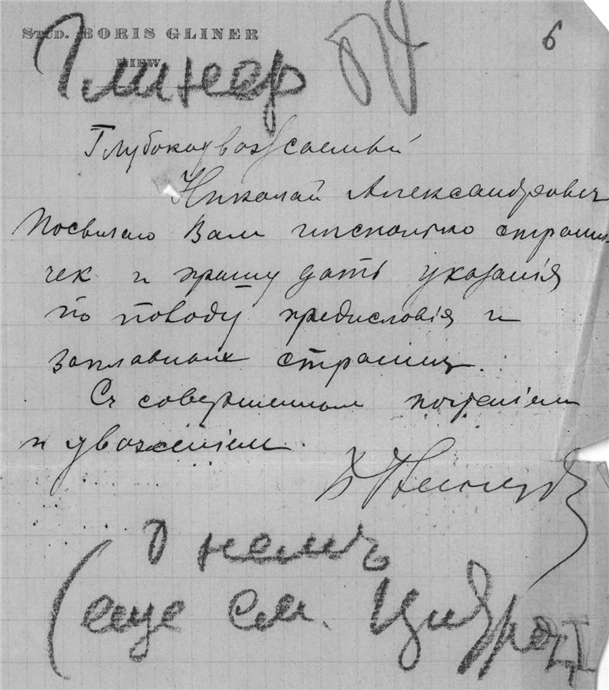 STUD. BORIS GLINER
6
KIEW.
Глинер
Глубокоуважаемый
Николай Александрович
Посылаю Вам несколько странич
чек и прошу дать указанія
по поводу предисловія и
заглавных страниц.
Съ совершенным почтеніем
и уваженіем
О немъ
(еще см.